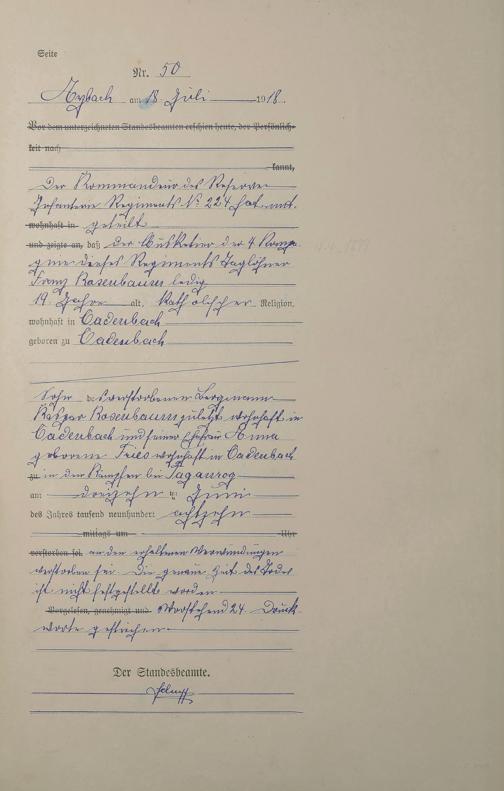 Seite
Nr. 50
Aybach am 18 Juli 1918.
Vor dem unterzeichneten Standesbeamten erschien heute, der Persönlich-
keit nach
kannt,
Der Kommandeur des Reserve
Infanterie Regiments No 224 hat mit-
wohnhaft in geteilt
und zeigte an, daß der Musketier der 4 Kompa
gnie dieses Regiments Taglöhner
Franz Rosenbaum ledig
19 Jahre alt, Katholischer Religion,
wohnhaft in Cadenbach
geboren zu Cadenbach
Sohn des verstorbenen Bergmann
Kaspar Rosenbaum zuletzt wohnhaft in
Cadenbach und seiner Ehefrau Anna
geborene Fries wohnhaft in Cadenbach
zu in den Kämpfen bei Taganrog
am dreizehn ten Juni
des Jahres tausend neunhundert achtzehn
mittags um Uhr
verstorben sei. an den erhaltenen Verwundungen
verstorben sei. Die genaue Zeit des Todes
ist nicht festgestellt worden
Vorgelesen, genehmigt und Vorstehend 24 Druck
worte gestrichen
Der Standesbeamte.